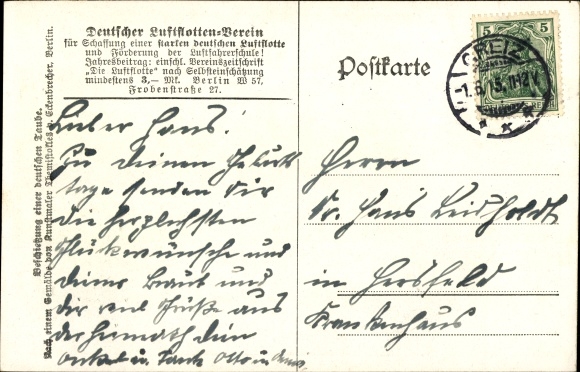 Deutscher Luftflotten-Verein
für Schaffung einer starken deutschen Luftflotte
und Förderung der Luftfahrerschule!
Jahresbeitrag: einschl. Vereinszeitschrift
„Die Luftflotte" nach Selbsteinschätzung
mindestens 3,— Mk. Berlin W 57,
Frobenstraße 27.
Beschießung einer deutschen Taube.
Nach einem Gemälde von Kunstmaler Themistokles v. Eckenbrecher, Berlin.
Lieber Hans!
Zu deinem Geburts
tage senden wir
die herzlichsten
Glückwünsche und
deiner Braut und
dir viel Grüße aus
der Heimath dein
Onkel u. Tante Otto u.
Postkarte
5 5
GREIZ
-1.6.15. 11-12V.
Herrn
Dr. Hans Leidholdt
in Hersfeld
Krankenhaus